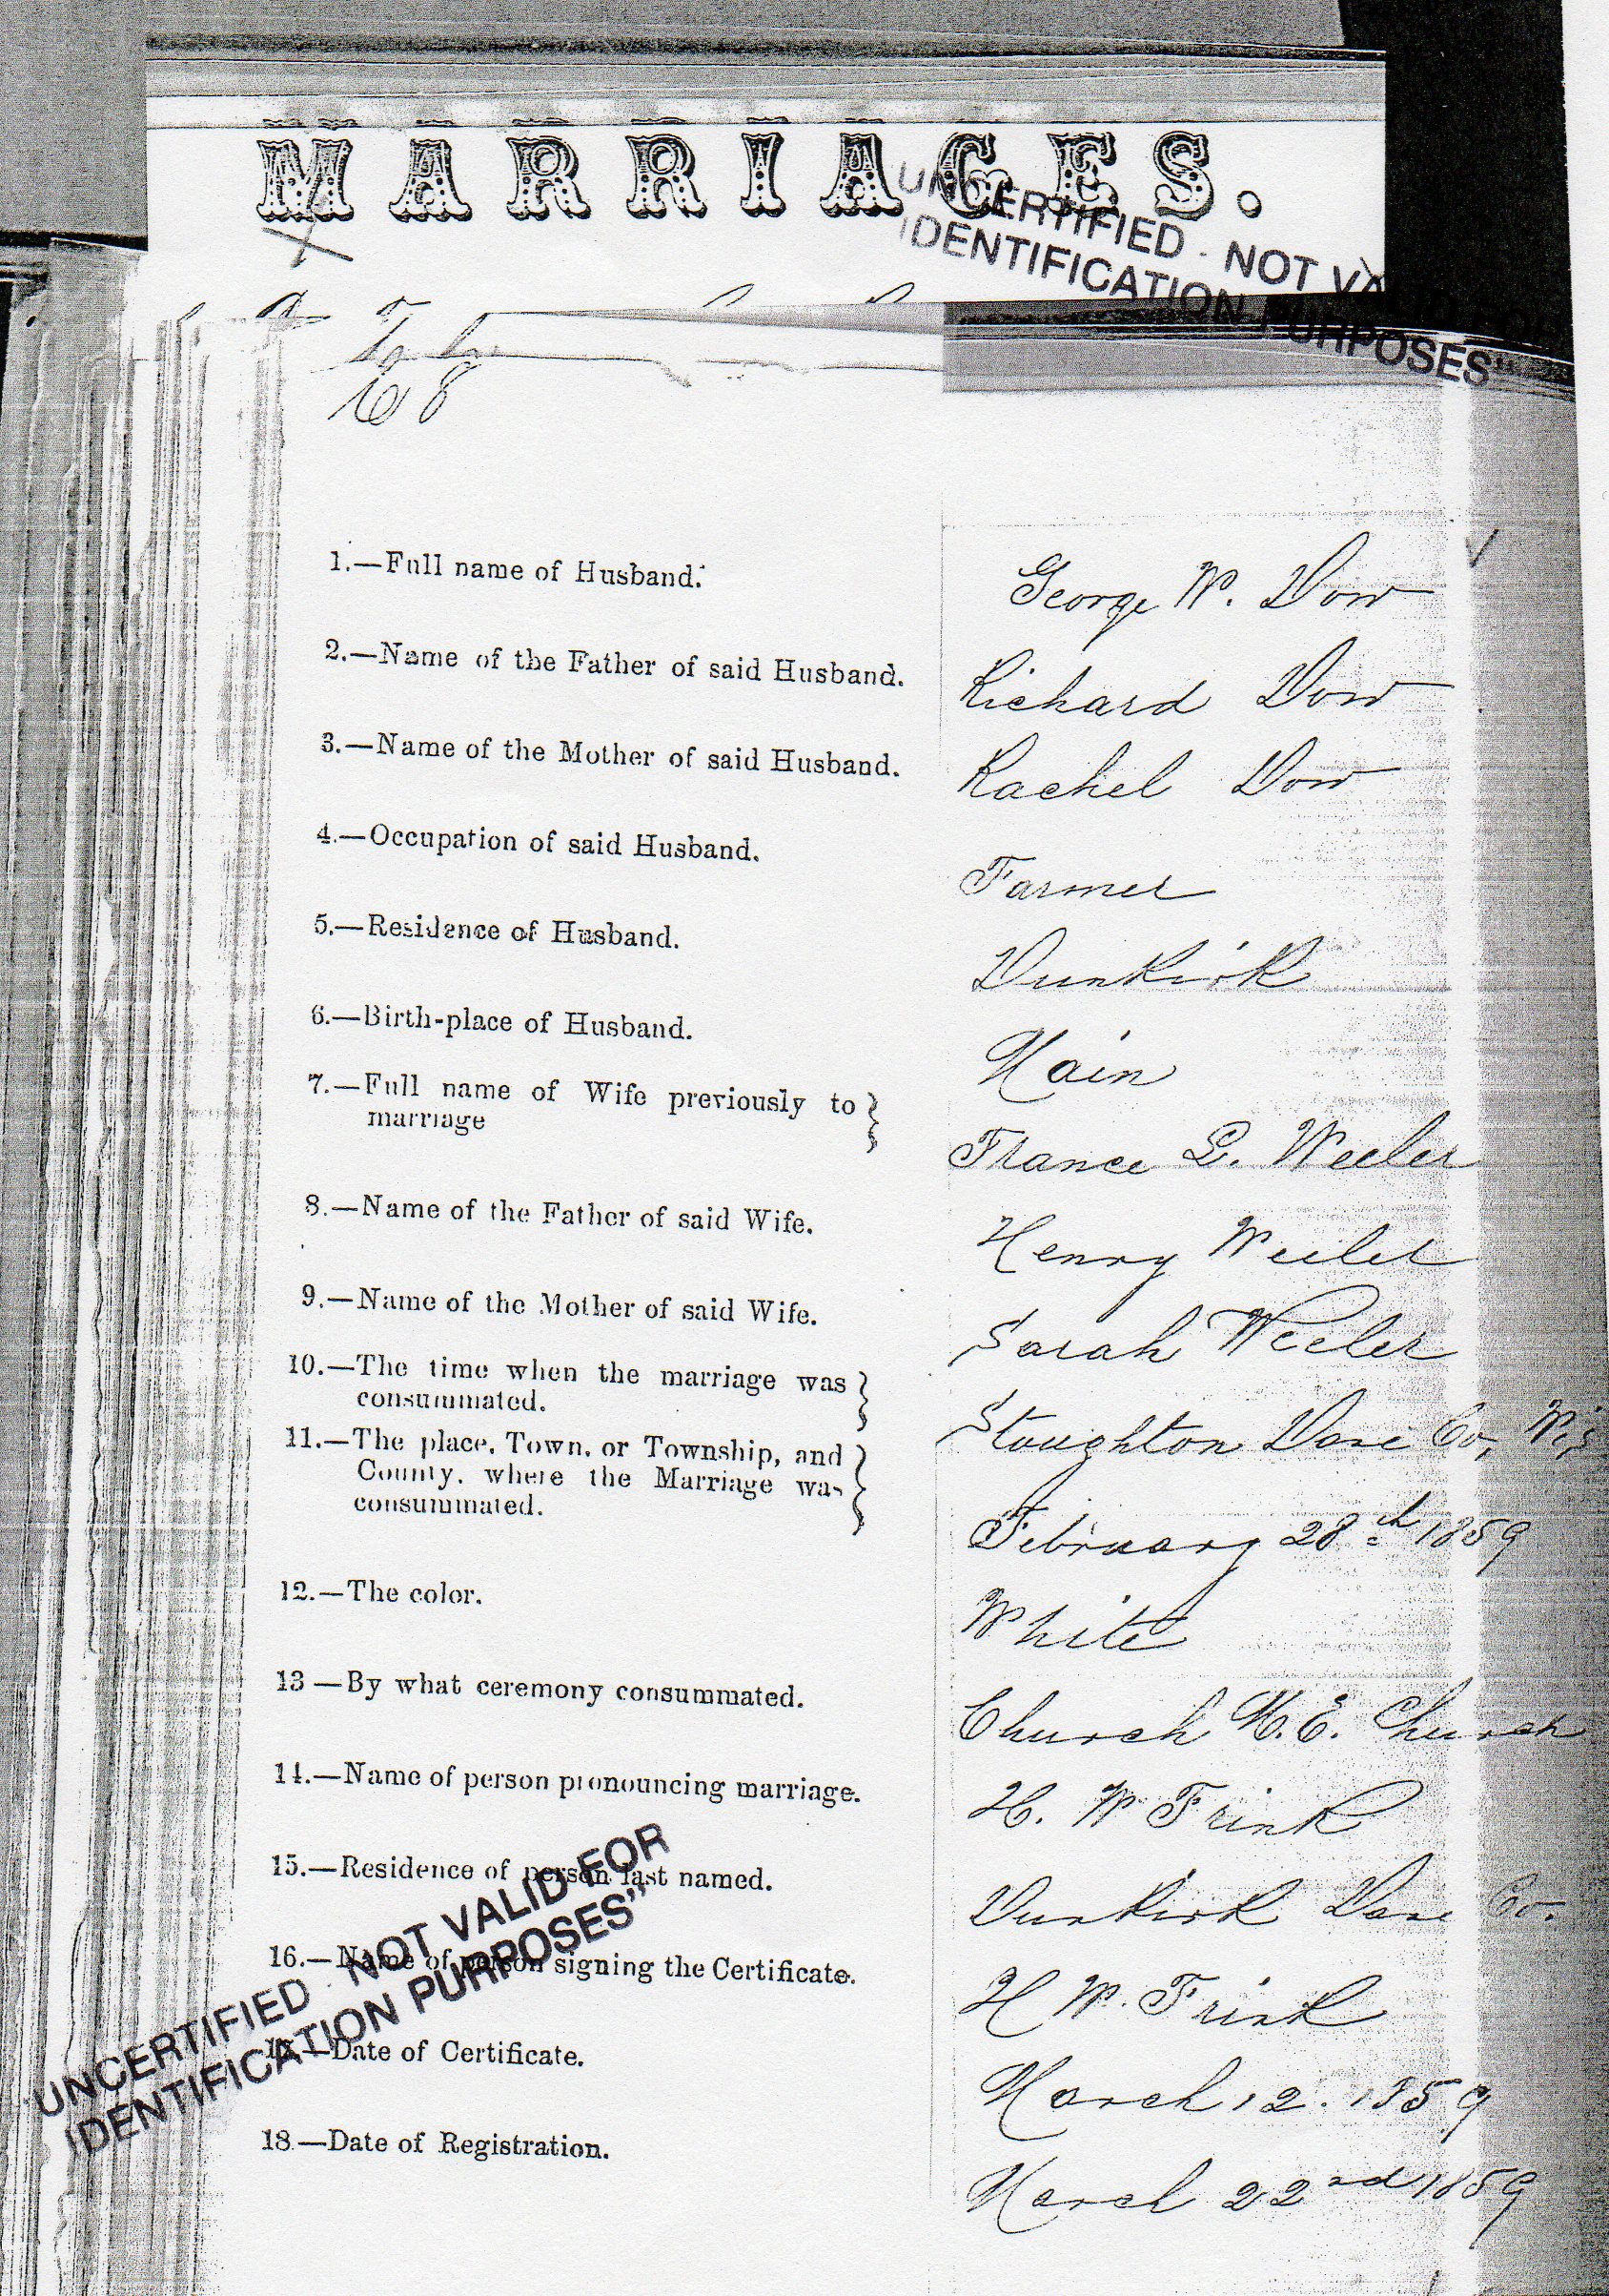 MARRIAGES.
UNCERTIFIED - NOT VA
IDENTIFICATION PURPOSES"
1.—Full name of Husband. George W. Dow
2.—Name of the Father of said Husband. Richard Dow
3.—Name of the Mother of said Husband. Rachel Dow
4.—Occupation of said Husband. Farmer
5.—Residence of Husband. Dunkirk
6.—Birth-place of Husband. Main
7.—Full name of Wife previously to
marriage France L. Weeler
8.—Name of the Father of said Wife. Henry Weeler
9.—Name of the Mother of said Wife. Sarah Weeler
10.—The time when the marriage was
consummated. Stoughton Dane Co, Wis
11.—The place, Town, or Township, and
County, where the Marriage was
consummated. February 28th 1859
12.—The color. White
13—By what ceremony consummated. Church M.E. Church
14.—Name of person pronouncing marriage. H. W Frink
15.—Residence of person last named. Dunkirk Dane Co.
16.—Name of person signing the Certificate. H W. Frink
17.—Date of Certificate. March 12. 1859
18—Date of Registration. March 22nd 1859
UNCERTIFIED - NOT VALID FOR
IDENTIFICATION PURPOSES"